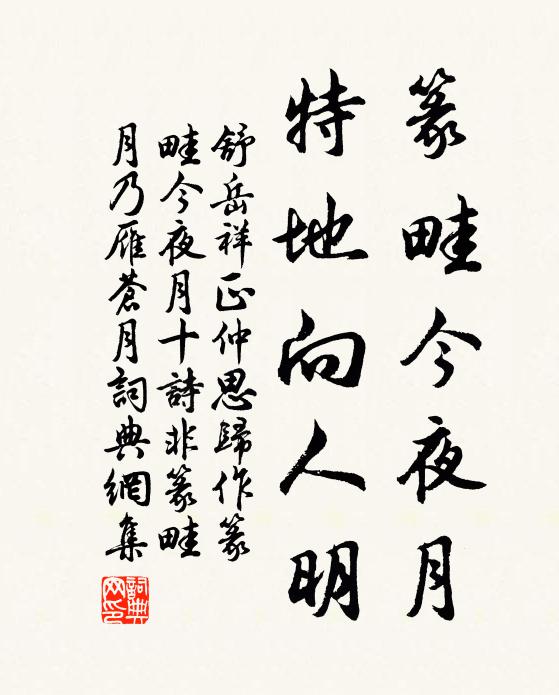 篆畦今夜月
特地向人明
舒岳祥正仲思歸作篆
畦今夜月十詩非篆畦
月乃雁蒼月詞典網集
詞典
网印